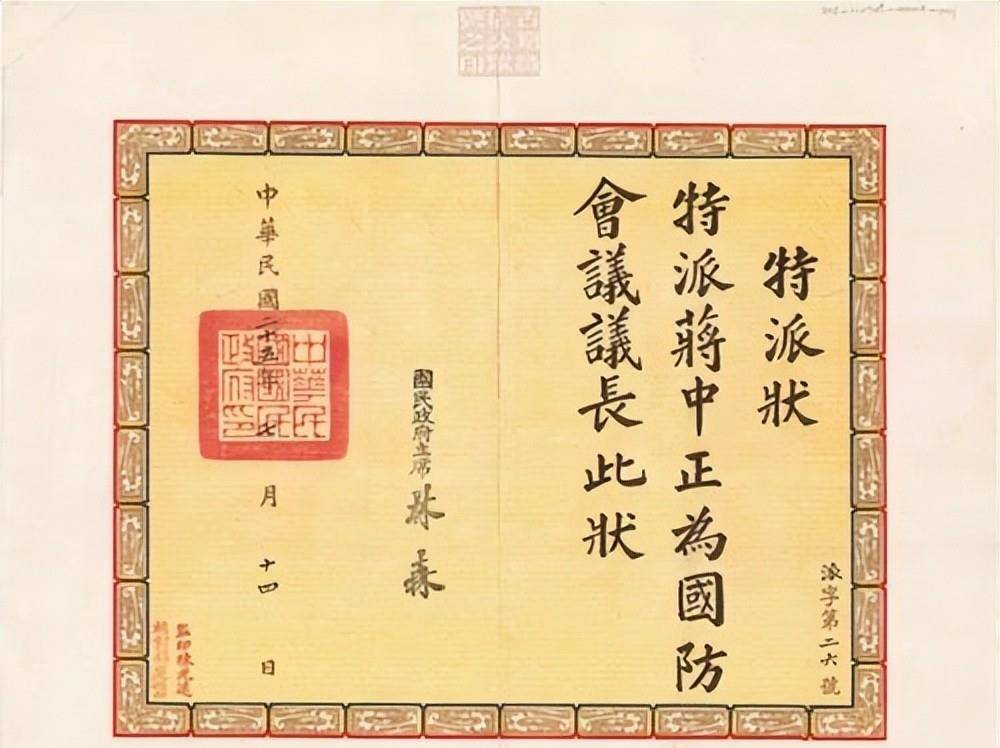 特派狀
特派蔣中正為國防
會議議長此狀
派字第二六號
國民政府主席 林森
中華民國二十五年七月十四日
中華民國國民政府印